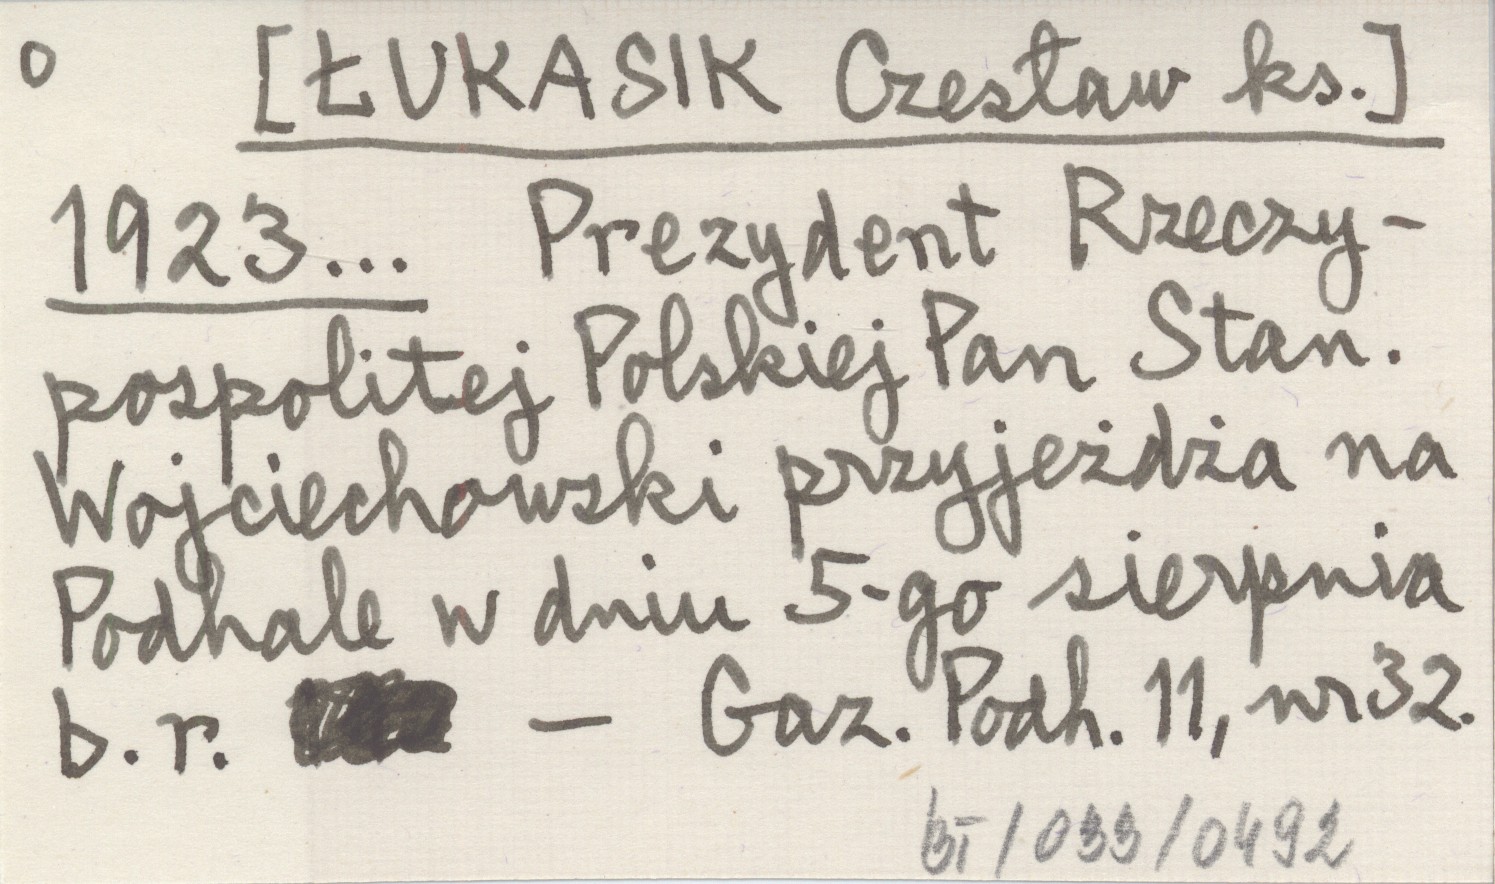 o [ŁUKASIK Czesław ks.]
1923... Prezydent Rzeczy-
pospolitej Polskiej Pan Stan.
Wojciechowski przyjeżdża na
Podhale w dniu 5-go sierpnia
b.r. — Gaz. Podh. 11, nr 32.
/033/0492